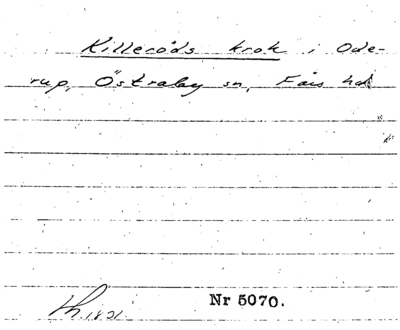 Killeröds krok i Ode-
rup, Östraby sn, Färs hd
Nr 5070.